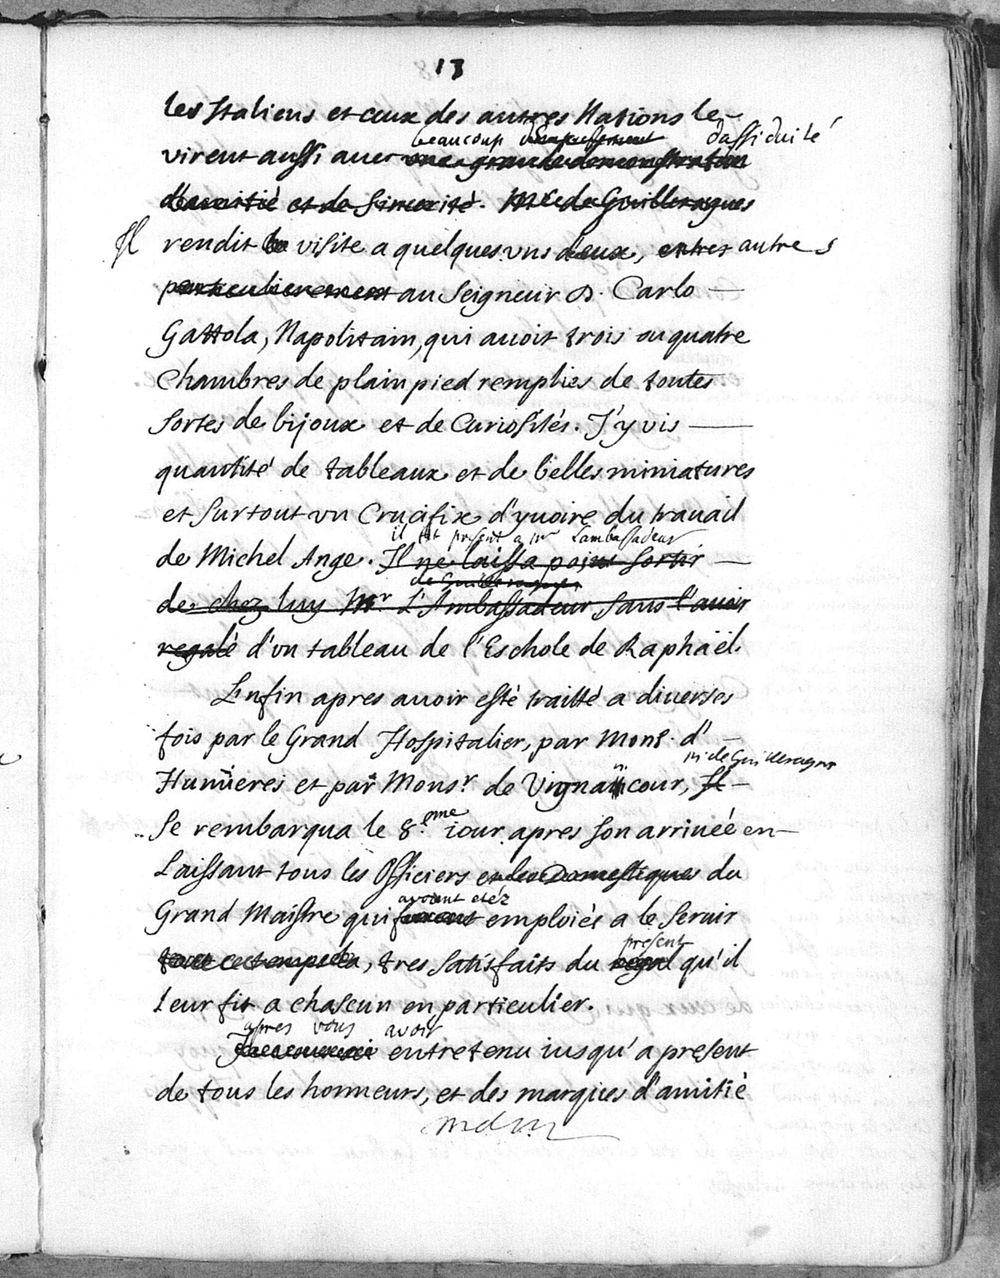 13
les Italiens et ceux des autres Nations le
beaucoup d'assiduité
virent aussi avec une grande demonstration
d'amitié et de sincerité. Mr. de Guilleragues
Il rendit la visite a quelques uns d'eux, entres autres
particulierement au Seigneur D. Carlo
Gattola, Napolitain, qui auoit trois ou quatre
Chambres de plain pied remplies de toutes
sortes de bijoux et de Curiosités. J'y vis
quantité de tableaux et de belles miniatures
et surtout vn Crucifix d'yuoire du trauail
il fit present a mr Lambassadeur
de Michel Ange. Il ne laissa point sortir
de Guilleragues
de chez luy Mr L'Ambassadeur sans l'auoir
regalé d'vn tableau de l'Eschole de Raphaël.
Enfin apres auoir esté traitté a diverses
fois par le Grand Hospitalier, par Mons. d'
mr de Guilleragues
Humieres et par Monsr. de Vignacour, Il
se rembarqua le 8.eme iour apres son arriuée en
Laissant tous les Officiers et les Domestiques du
avoient etéz
Grand Maistre qui furent emploiés a le seruir
present
tout ce temps la, tres satisfaits du regal qu'il
leur fit a chascun en particulier.
apres vous avoir
entretenu iusqu'a present
de tous les honneurs, et des marques d'amitié